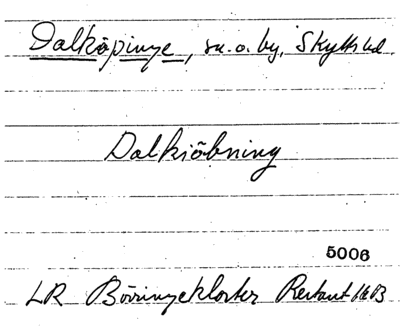 Dalköpinge, sn. o. by, Skytts hd.
Dalkiöbning
5006
LR Börringekloster Restant